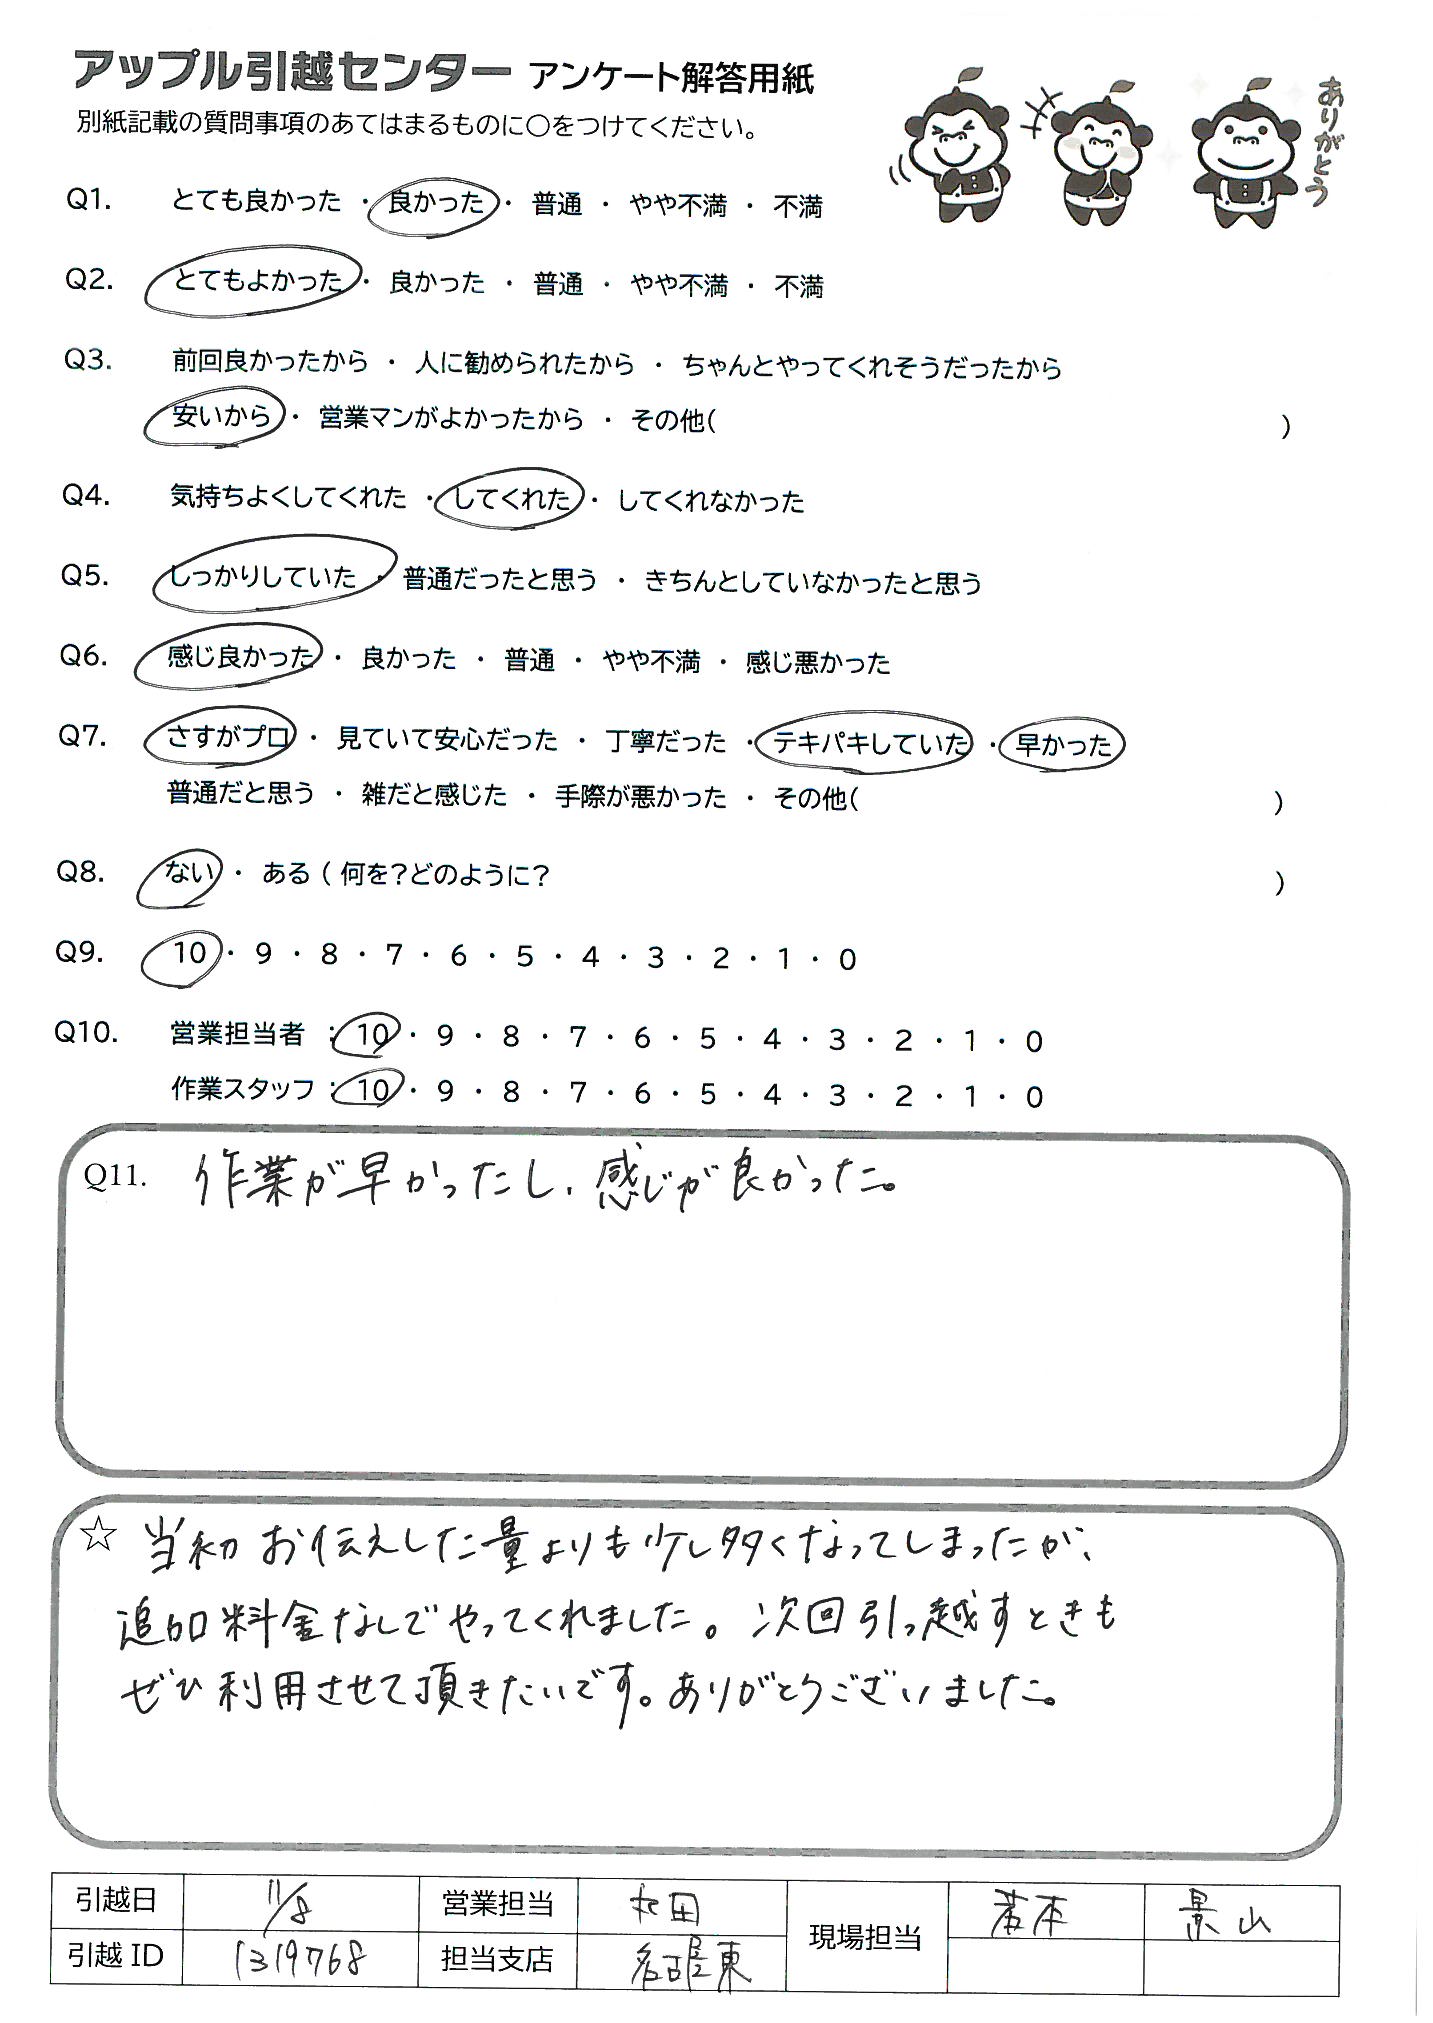 アップル引越センター アンケート解答用紙
別紙記載の質問事項のあてはまるものに〇をつけてください。
ありがとう
Q1. とても良かった ・ 良かった ・ 普通 ・ やや不満 ・ 不満
Q2. とてもよかった ・ 良かった ・ 普通 ・ やや不満 ・ 不満
Q3. 前回良かったから ・ 人に勧められたから ・ ちゃんとやってくれそうだったから
安いから ・ 営業マンがよかったから ・ その他( )
Q4. 気持ちよくしてくれた ・ してくれた ・ してくれなかった
Q5. しっかりしていた ・ 普通だったと思う ・ きちんとしていなかったと思う
Q6. 感じ良かった ・ 良かった ・ 普通 ・ やや不満 ・ 感じ悪かった
Q7. さすがプロ ・ 見ていて安心だった ・ 丁寧だった ・ テキパキしていた ・ 早かった
普通だと思う ・ 雑だと感じた ・ 手際が悪かった ・ その他( )
Q8. ない ・ ある ( 何を?どのように? )
Q9. 10 ・ 9 ・ 8 ・ 7 ・ 6 ・ 5 ・ 4 ・ 3 ・ 2 ・ 1 ・ 0
Q10. 営業担当者 : 10 ・ 9 ・ 8 ・ 7 ・ 6 ・ 5 ・ 4 ・ 3 ・ 2 ・ 1 ・ 0
作業スタッフ : 10 ・ 9 ・ 8 ・ 7 ・ 6 ・ 5 ・ 4 ・ 3 ・ 2 ・ 1 ・ 0
Q11. 作業が早かったし、感じが良かった。
☆ 当初お伝えした量よりも少し多くなってしまったが、
追加料金なしでやってくれました。次回引っ越すときも
ぜひ利用させて頂きたいです。ありがとうございました。
引越日 11/8 営業担当 現場担当 景山
引越 ID 1319768 担当支店 名古屋東